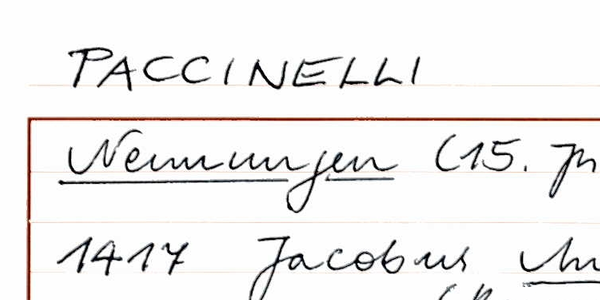 PACCINELLI
Nennungen (15. Jh
1417 Jacobus